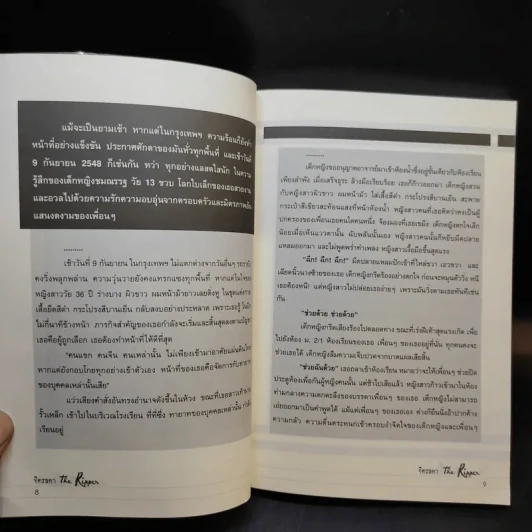 แม้จะเป็นยามเช้า หากแต่ในกรุงเทพฯ ความร้อนก็ยังทำ
หน้าที่อย่างแข็งขัน ประกาศศักดาของมันทั่วทุกพื้นที่ และเช้าวันที่
9 กันยายน 2548 ก็เช่นกัน ทว่า ทุกอย่างแลสดใสนัก ในความ
รู้สึกของเด็กหญิงชมณรรฐ วัย 13 ขวบ โลกใบเล็กของเธอสวยงาม
และอวลไปด้วยความรักความอบอุ่นจากครอบครัวและมิตรภาพอัน
แสนงดงามของเพื่อนๆ
..........
เช้าวันที่ 9 กันยายน ในกรุงเทพฯ ไม่แตกต่างจากวันอื่นๆ รถรายัง
คงวิ่งพลุกพล่าน ความวุ่นวายยังคงแทรกแซงทุกพื้นที่ หากแต่ในใจของ
หญิงสาววัย 36 ปี ร่างบาง ผิวขาว ผมหน้าม้ายาวเลย
เสื้อยืดสีดำ กระโปรงสีบานเย็น กลับสงบอย่างประหลาด เพราะเธอรู้
ไม่กี่นาทีข้างหน้า ภารกิจสำคัญของเธอกำลังจะเริ่มและสิ้นสุดลงตาม
เธอคือผู้ถูกเลือก เธอต้องทำหน้าที่ให้ดีที่สุด
"คนแขก คนจีน คนเหล่านั้น ไม่เพียงเข้ามาอาศัยแผ่นดินไทย
หากแต่ยังกอบโกยทุกอย่างเข้าตัวเอง หน้าที่ของเธอคือจัดการกับทายาท
ของบุคคลเหล่านั้นเสีย"
แว่วเสียงคำสั่งอันทรงอำนาจดังขึ้นในห้วง ขณะที่เธอสาวเท้าผ่าน
รั้วเหล็ก เข้าไปในบริเวณโรงเรียน ที่ที่ซึ่ง ทายาทของบุคคลเหล่านั้น กำลัง
เรียนอยู่
จิตรลดา The Ripper
8
..........
เด็กหญิงขออนุญาตอาจารย์มาเข้าห้องน้ำซึ่งอยู่ชั้นเดียวกับห้องเรียน
เพียงลำพัง เมื่อเสร็จธุระ ล้างมือเรียบร้อย เธอก็ก้าวออกมา เด็กหญิงสวน
กับหญิงสาวผิวขาว ผมหน้าม้า ใส่เสื้อสีดำ กระโปรงสีบานเย็น สะพาย
กระเป๋าสีเขียวสะท้อนแสงที่หน้าห้องน้ำ หญิงสาวคนที่เธอคิดว่าคงเป็นผู้
ปกครองของเพื่อนเธอคนใดคนหนึ่ง จ้องมองที่เธอเขม็ง เด็กหญิงตกใจเล็ก
น้อยเมื่อเห็นแววตานั้น ฉับพลันนั้นเอง หญิงสาวคนนั้นก็หยิบมีดปลาย
แหลมออกมา และไม่พูดพร่ำทำเพลง หญิงสาวเงื้อมือขึ้นสุดแรง
"ฉึก! ฉึก! ฉึก!" มีดปลายแหลมปักเข้าที่ไหล่ขวา เอวขวา และ
เฉียดนิ้วนางซ้ายของเธอ เด็กหญิงกรีดร้องอย่างตกใจ ก่อนจะหมุนตัววิ่ง หนี
เธอต้องหนี! แต่หญิงสาวไม่ปล่อยเธอง่ายๆ เพราะมันวิ่งตามเธอทันทีเช่น
กัน
"ช่วยด้วย ช่วยด้วย"
เด็กหญิงกรีดเสียงร้องไปตลอดทาง ขณะที่เร่งฝีเท้าสุดแรงเกิด เพื่อ
ไปยังห้อง ม. 2/1 ห้องเรียนของเธอที่ เพื่อนๆ ของเธออยู่ที่นั่น ทุกคนคงจะ
ช่วยเธอได้ เด็กหญิงลืมความเจ็บปวดจากบาดแผลเสียสิ้น
"ช่วยฉันด้วย" เธอถลาเข้าห้องเรียน หมายว่าจะให้เพื่อนๆ ช่วยปิด
ประตูห้องเพื่อกันผู้หญิงคนนั้น แต่ช้าไปเสียแล้ว หญิงสาวก้าวเข้ามาในห้อง
ท่ามกลางความตกตะลึงของบรรดาเพื่อนๆ ของเธอ เด็กหญิงไม่สามารถ
เอ่ยออกมาเป็นคำพูดได้ แม้แต่เพื่อนๆ ของเธอเอง ต่างก็ยืนนิ่งอ้าปากค้าง
ความกลัว ความตื่นตระหนกเข้าครอบงำจิตใจของเด็กหญิงและเพื่อนๆ
จิตรลดา The Ripper
9